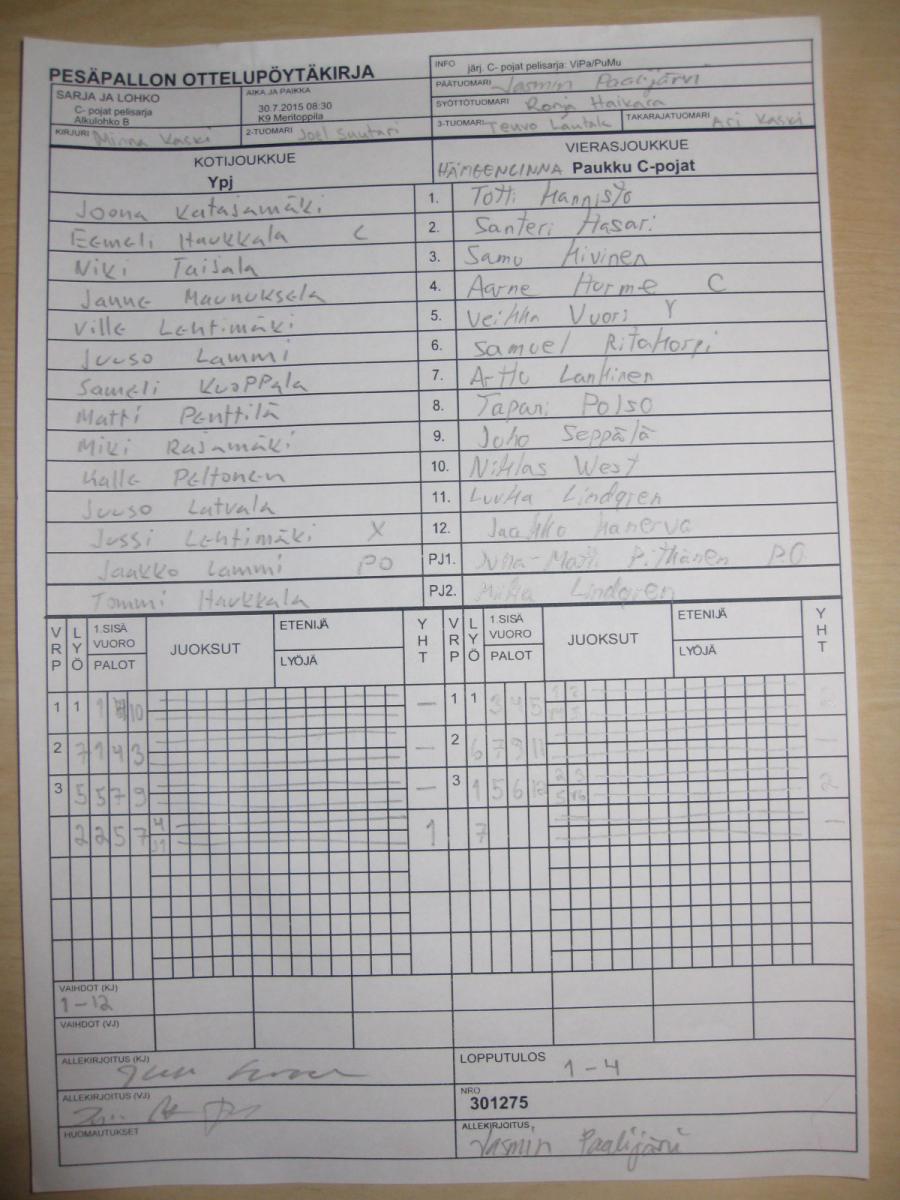 PESÄPALLON OTTELUPÖYTÄKIRJA
INFO järj. C- pojat pelisarja: ViPa/PuMu
PÄÄTUOMARI Jasmin Paalijärvi
SARJA JA LOHKO
C- pojat pelisarja
Alkulohko B
AIKA JA PAIKKA
30.7.2015 08:30
K9 Meritoppila
SYÖTTÖTUOMARI Ronja Haikara
KIRJURI Minna Kaski
2-TUOMARI Joel Suutari
3-TUOMARI Teuvo Lautala
TAKARAJATUOMARI Ari Kaski
KOTIJOUKKUE
Ypj
VIERASJOUKKUE
HÄMEENLINNA Paukku C-pojat
Joona Katajamäki 1. Totti Hannisto
Eemeli Haukkala C 2. Santeri Hasari
Niki Taipala 3. Samu Hivinen
Janne Maunuksela 4. Aarne Hurme C
Ville Lehtimäki 5. Veikka Vuori Y
Juuso Lammi 6. Samuel Ritakorpi
Sameli Kuoppala 7. Arttu Lankinen
Matti Penttilä 8. Tapani Polso
Miki Rajamäki 9. Juho Seppälä
Kalle Peltonen 10. Niklas West
Juuso Latvala 11. Luukka Lindgren
Jussi Lehtimäki X 12. Jaakko Kanerva
Jaakko Lammi PO PJ1. Juha-Matti Pitkänen P.O
Tommi Haukkala PJ2. Mika Lindgren
VRP LYÖ 1.SISÄ VUORO PALOT JUOKSUT ETENIJÄ LYÖJÄ YHT VRP LYÖ 1.SISÄ VUORO PALOT JUOKSUT ETENIJÄ LYÖJÄ YHT
1 1 1 10 — 1 1 3 4 5 1 2 2
2 7 1 4 3 — 2 6 7 9 11 —
3 5 5 7 9 — 3 1 5 6 12 2 3 5 2
2 2 5 7 4 1 7 —
VAIHDOT (KJ)
1-12
VAIHDOT (VJ)
ALLEKIRJOITUS (KJ)
LOPPUTULOS
1-4
ALLEKIRJOITUS (VJ)
NRO
301275
HUOMAUTUKSET
ALLEKIRJOITUS
Jasmin Paalijärvi